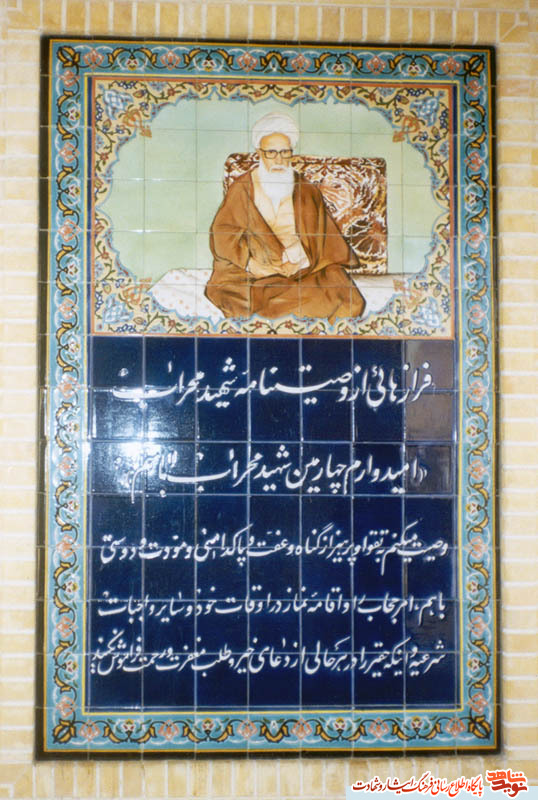 فرازهائی از وصیتنامه شهید محراب
«امیدوارم چهارمین شهید محراب باشم»
وصیت میکنم به تقوا و پرهیز از گناه و عفت و پاکدامنی و مودت و دوستی
باهم، امر حجاب و اقامه نماز در اوقات خود و سایر واجبات
شرعیه و اینکه حقیر را در هر حالی از دعای خیر و طلب مغفرت و رحمت فراموش نکنید
نوید شاهد
پایگاه اطلاع رسانی فرهنگ ایثار و شهادت